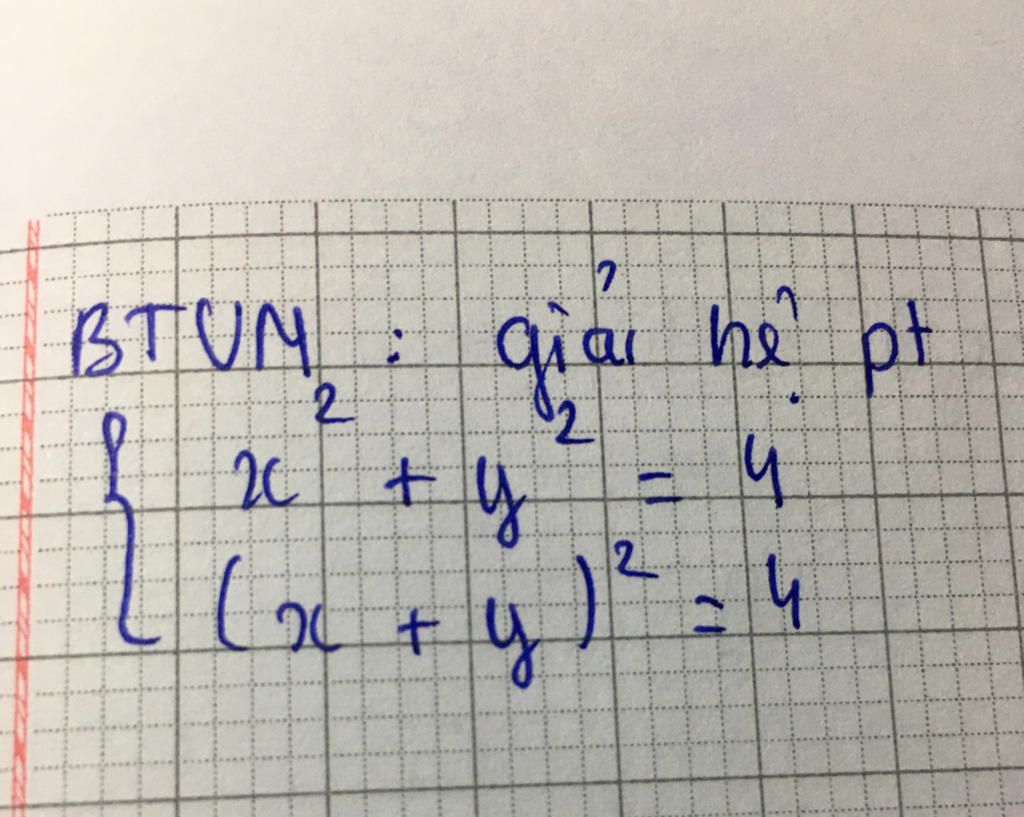 BTVN : giải hệ pt
{ x² + y² = 4
(x + y)² = 4